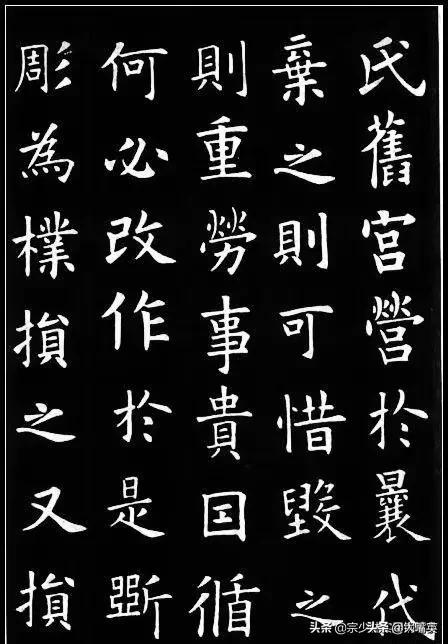 氏舊宮營於曩代
棄之則可惜毀之
則重勞事貴因循
何必改作於是斲
彫為樸損之又損
头条 @宗少